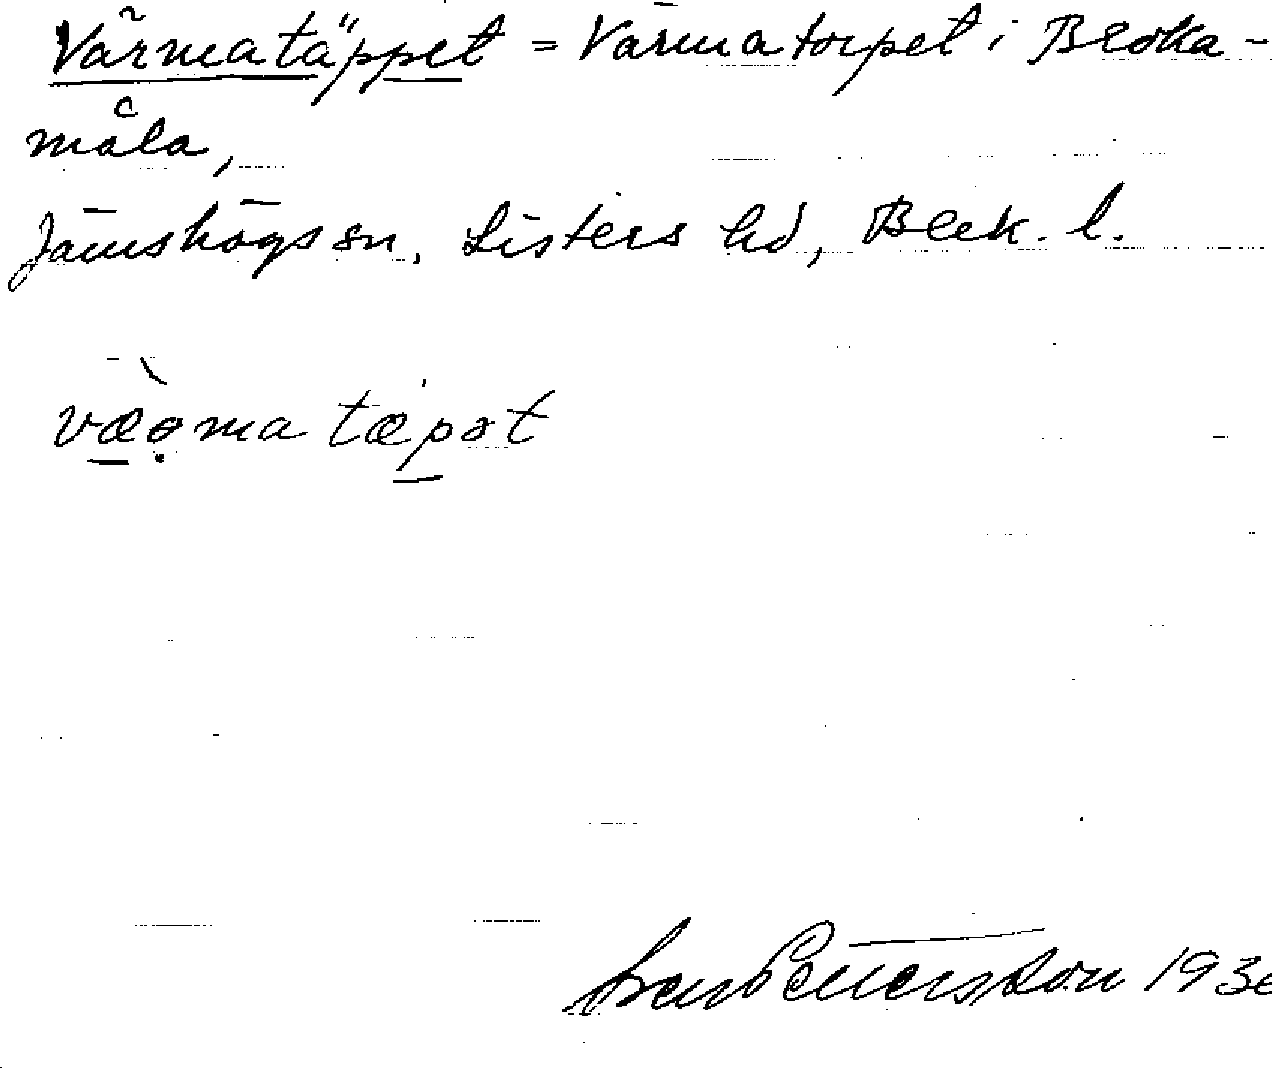 Värmatäppet = Värmatorpet i Broka-
måla,
Jämshögs sn, Listers hd, Blek. l.
væрma tæpət
Pettersson 193